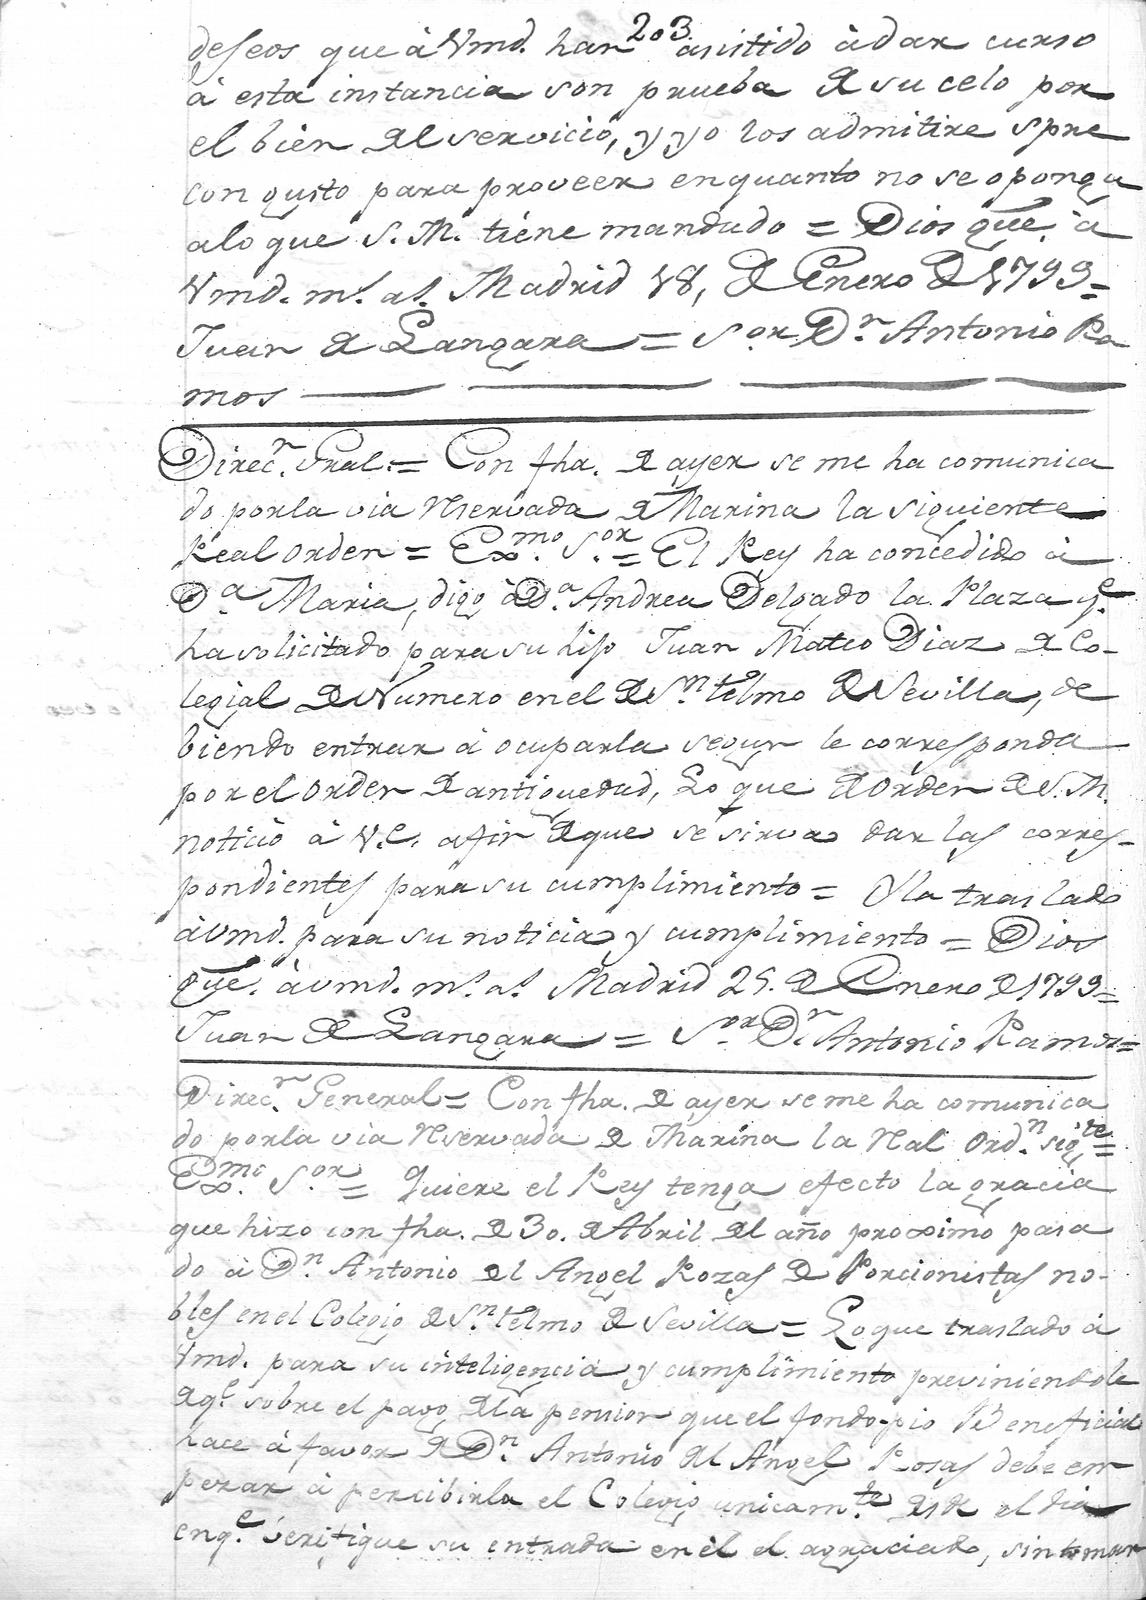 203
deseos que à Vmd. han asistido àdar curso
à esta instancia son prueba de su celo por
el bien del servicio, y yo los admitire spre
con gusto para proveer enquanto no se oponga
alo que S. M. tiene mandado = Dios gue. à
Vmd. ms. as. Madrid 18, de Enero de 1799=
Juan de Langara = Sor. Dn. Antonio Ra
mos
Direcn. Gral. = Con fha. de ayer se me ha comunica
do porla via Rservada de Marina la siguiente
Real Orden = Exmo. Sor. = El Rey ha concedido à
Da. Maria, digo àDa. Andrea Delgado la Plaza qe.
ha solicitado para su hijo Juan Mateo Diaz de Co-
legial de Numero en el de Sn. telmo de Sevilla, de
biendo entrar à ocuparla segun le corresponda
por el Orden de antiguedad, Lo que de Orden de S. M.
noticio à V.E. afin de que se sirva dar las corres-
pondientes para su cumplimiento = Yla traslado
àvmd. para su noticia y cumplimiento = Dios
gue. àvmd. ms. as. Madrid 25. de Enero de 1799=
Juan de Langara = Sor. Dn. Antonio Ramos=
Direcn. General = Con fha. de ayer se me ha comunica
do porla via Rservada de Marina la Rlal Ordn. sigte=
Exmo. Sor. = Quiere el Rey tenga efecto la gracia
que hizo con fha. de 30. de Abril del año proximo pasa
do à Dn. Antonio del Angel Rozas de Porcionistas no-
bles en el Colegio de Sn. telmo de Sevilla = Lo que traslado à
Vmd. para su inteligencia y cumplimiento previniendole
de qe. sobre el pago dela pension que el fondo-pio Beneficial
hace à favor de Dn. Antonio del Angel Rosas debe em
pezar à percibirla el Colegio unicamte. desde el dia
enqe. verifique su entrada en èl el agraciado, sin tomar